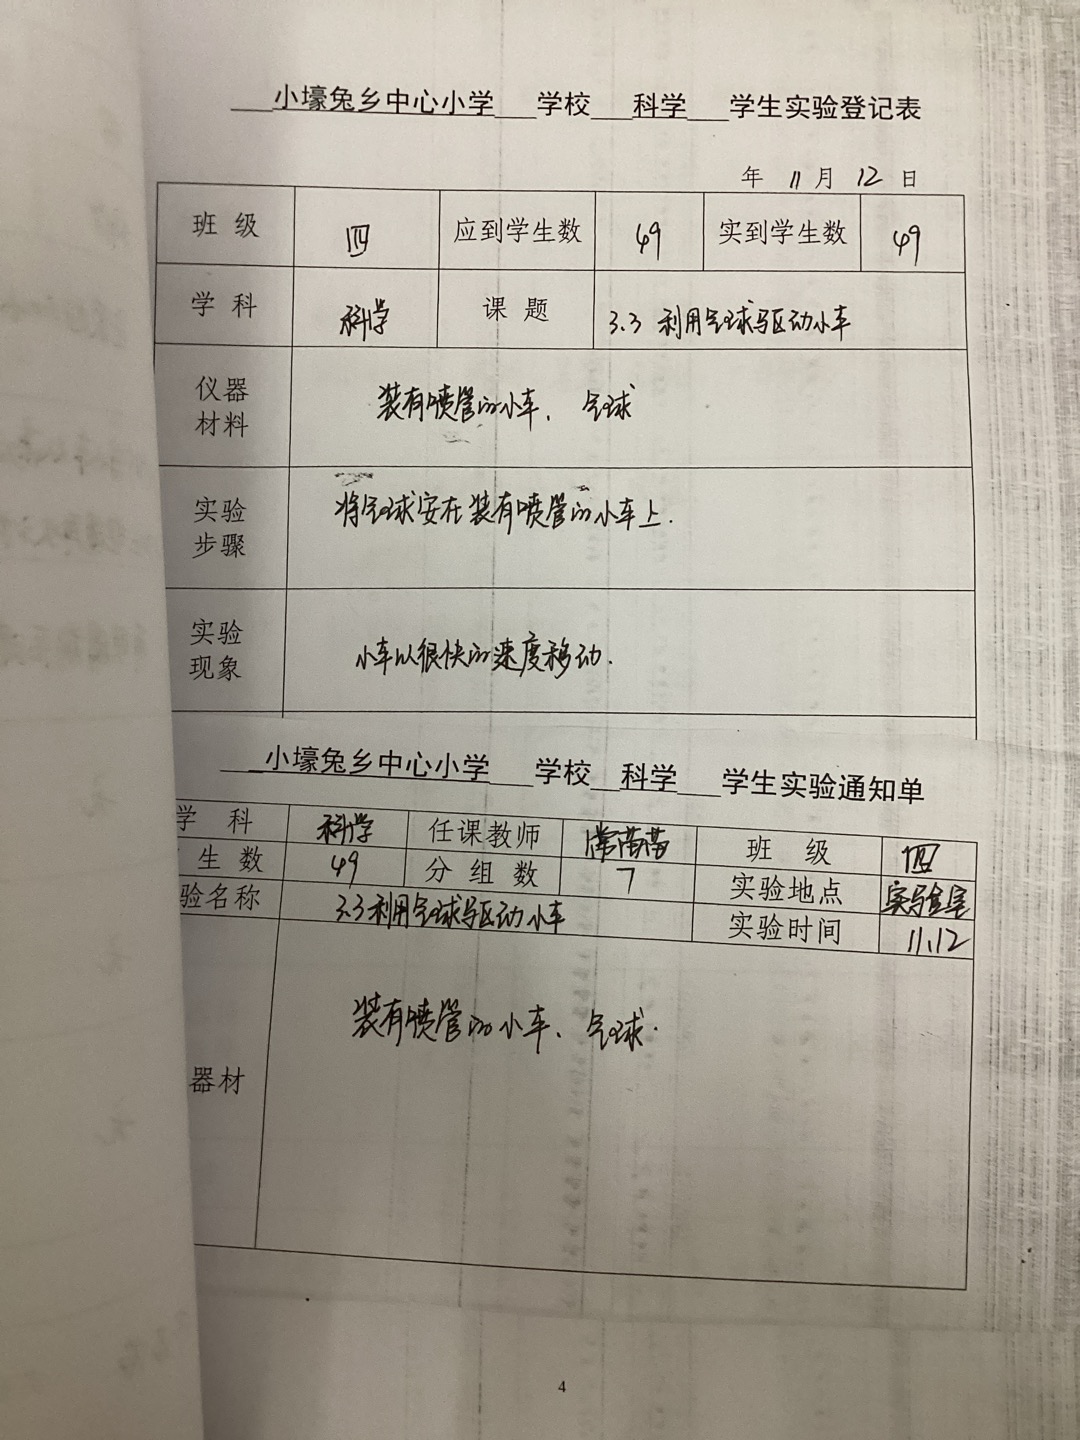 小壕兔乡中心小学 学校 科学 学生实验登记表
年 11月 12日
班 级 四 应到学生数 49 实到学生数 49
学 科 科学 课 题 3.3 利用气球驱动小车
仪器
材料
装有喷管的小车、气球
实验
步骤
将气球安在装有喷管的小车上.
实验
现象
小车以很快的速度移动.
小壕兔乡中心小学 学校 科学 学生实验通知单
学 科 科学 任课教师 班 级 四
生 数 49 分 组 数 7 实验地点 实验室
验名称 3.3利用气球驱动小车 实验时间 11.12
器材 装有喷管的小车、气球.
4